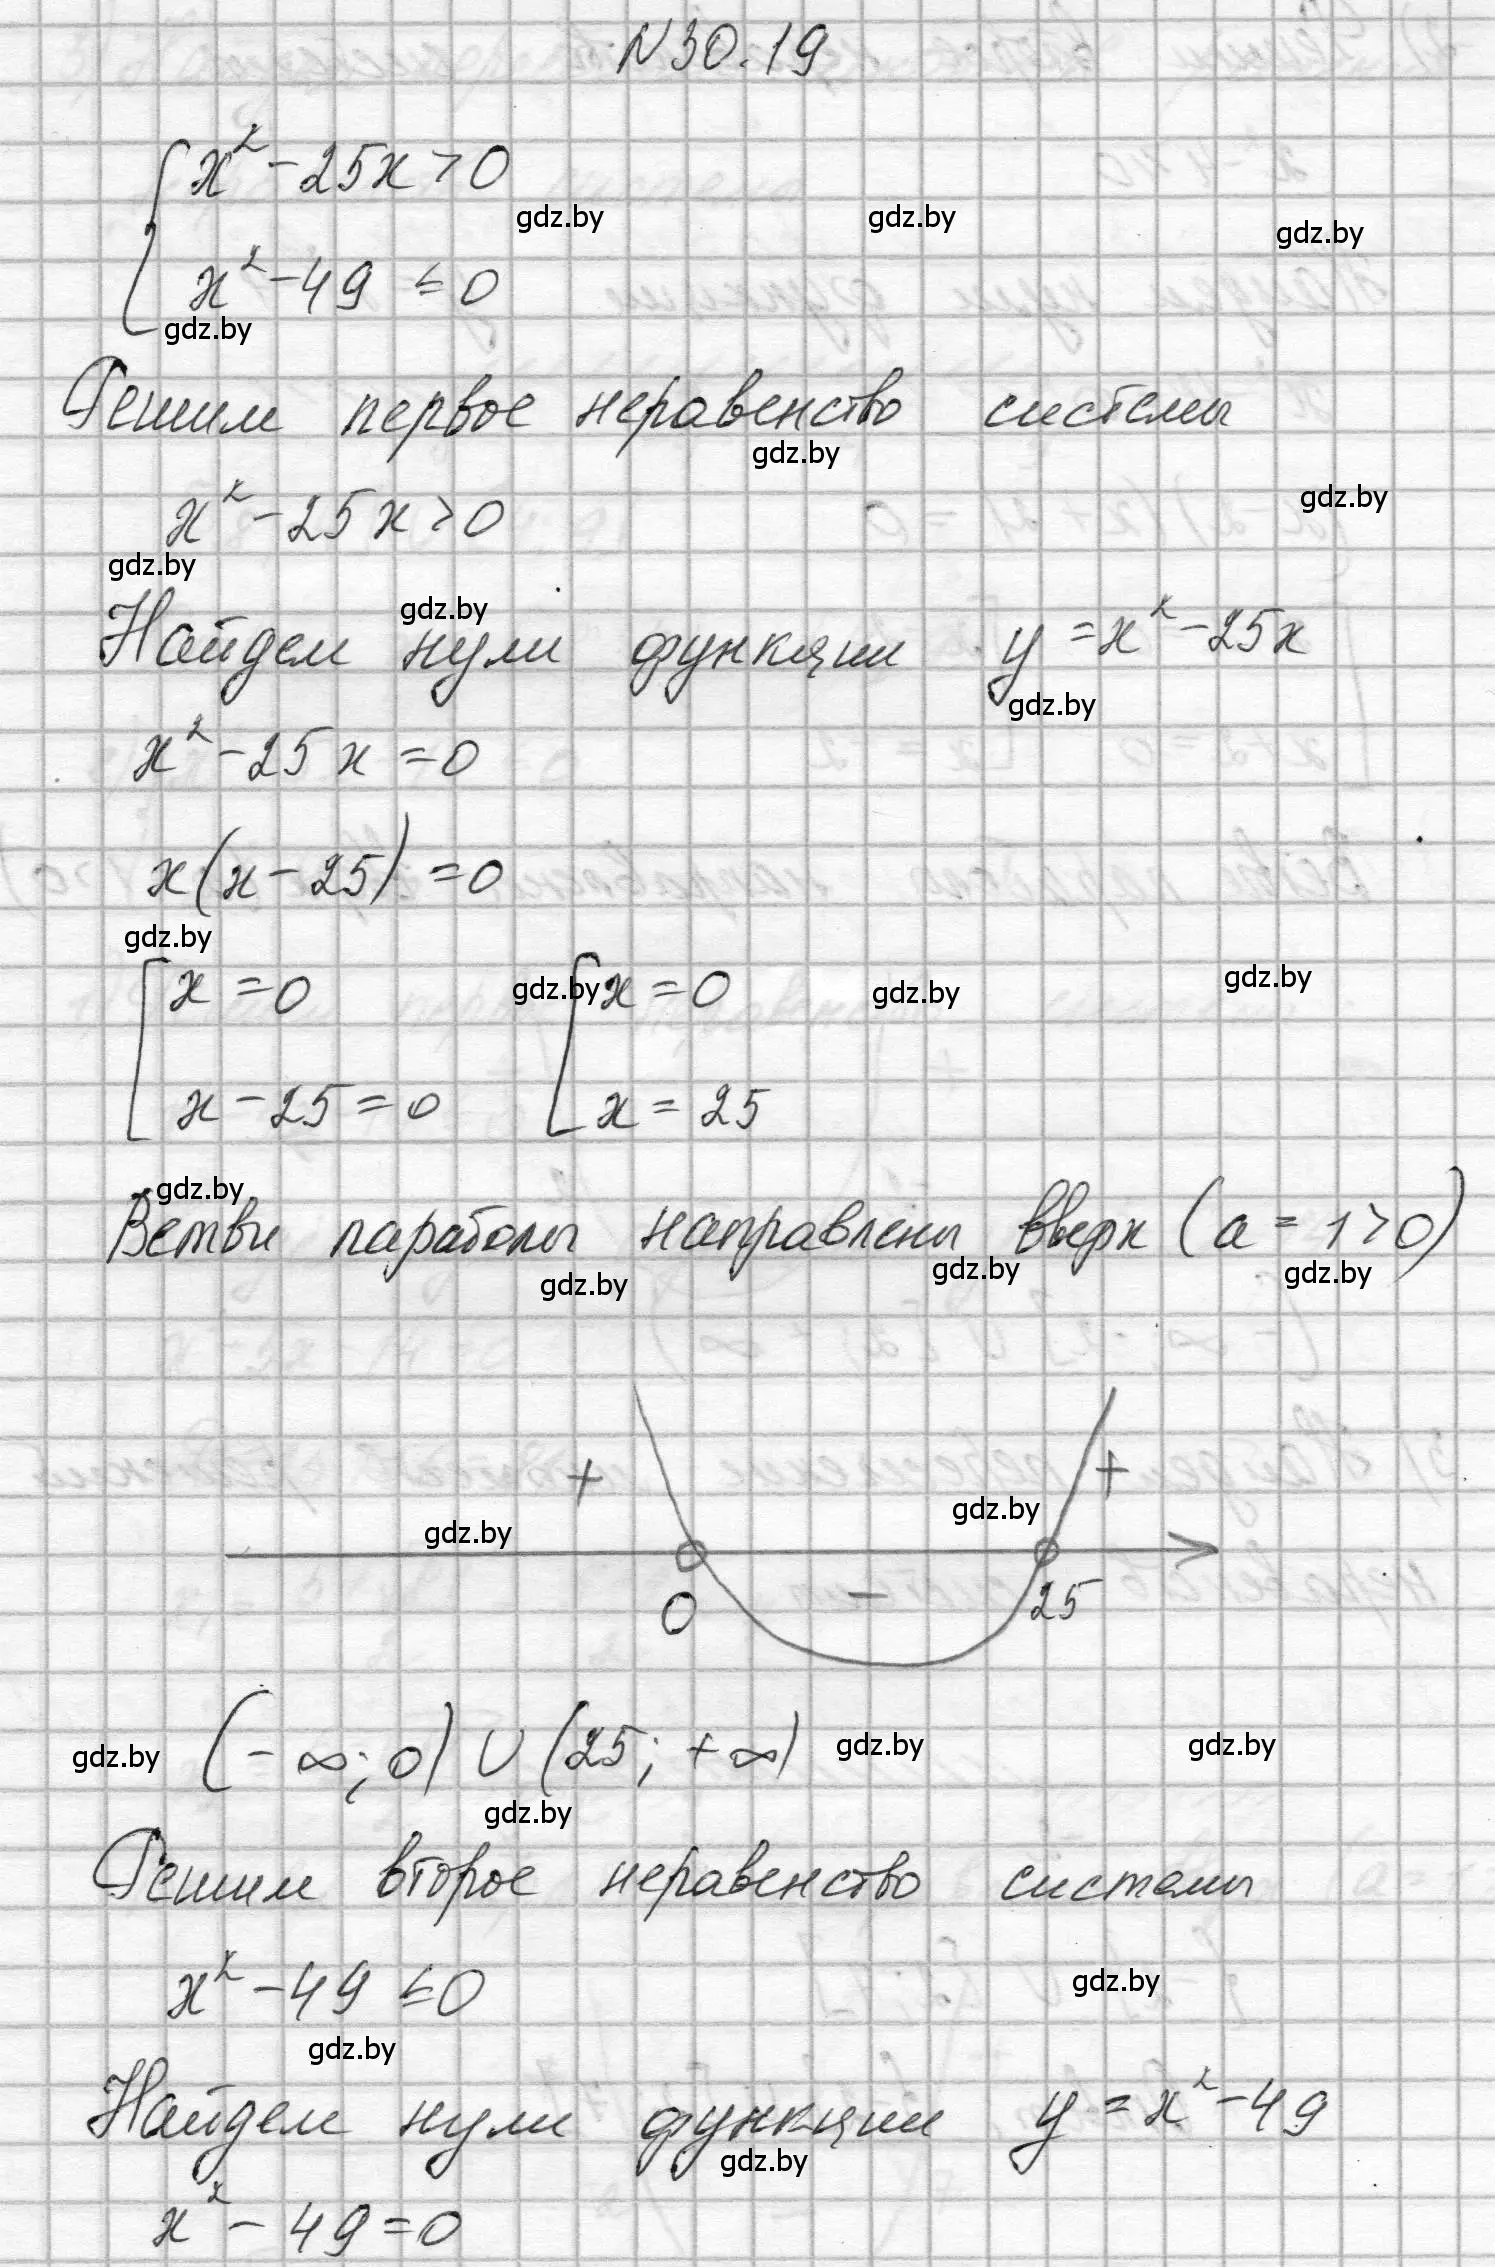 N30.19
x² - 25x > 0
gdz.by gdz.by gdz.by
x² - 49 ≤ 0
gdz.by
Решим первое неравенство системы
gdz.by
gdz.by
x² - 25x > 0
gdz.by
gdz.by
Найдем нули функции y = x² - 25x
gdz.by
x² - 25x = 0
x(x - 25) = 0
gdz.by
x = 0 gdz.by x = 0 gdz.by gdz.by
x - 25 = 0 x = 25
gdz.by
Ветви параболы направлены вверх (a = 1 > 0)
gdz.by gdz.by gdz.by
+ +
gdz.by gdz.by
0 - 25
gdz.by (-∞; 0) ∪ (25; +∞) gdz.by gdz.by
gdz.by
Решим второе неравенство системы
x² - 49 ≤ 0 gdz.by
gdz.by
Найдем нули функции y = x² - 49
gdz.by
x² - 49 = 0